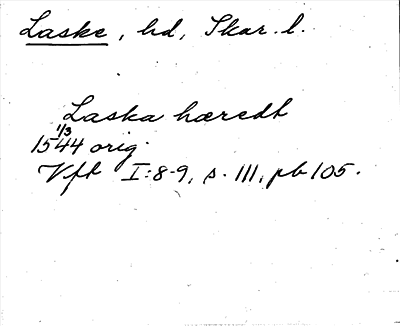 Laske, hd, Skar. l.
Laska hæredt
1/3
1544 orig.
Vft I:8-9, s. 111, pb 105.